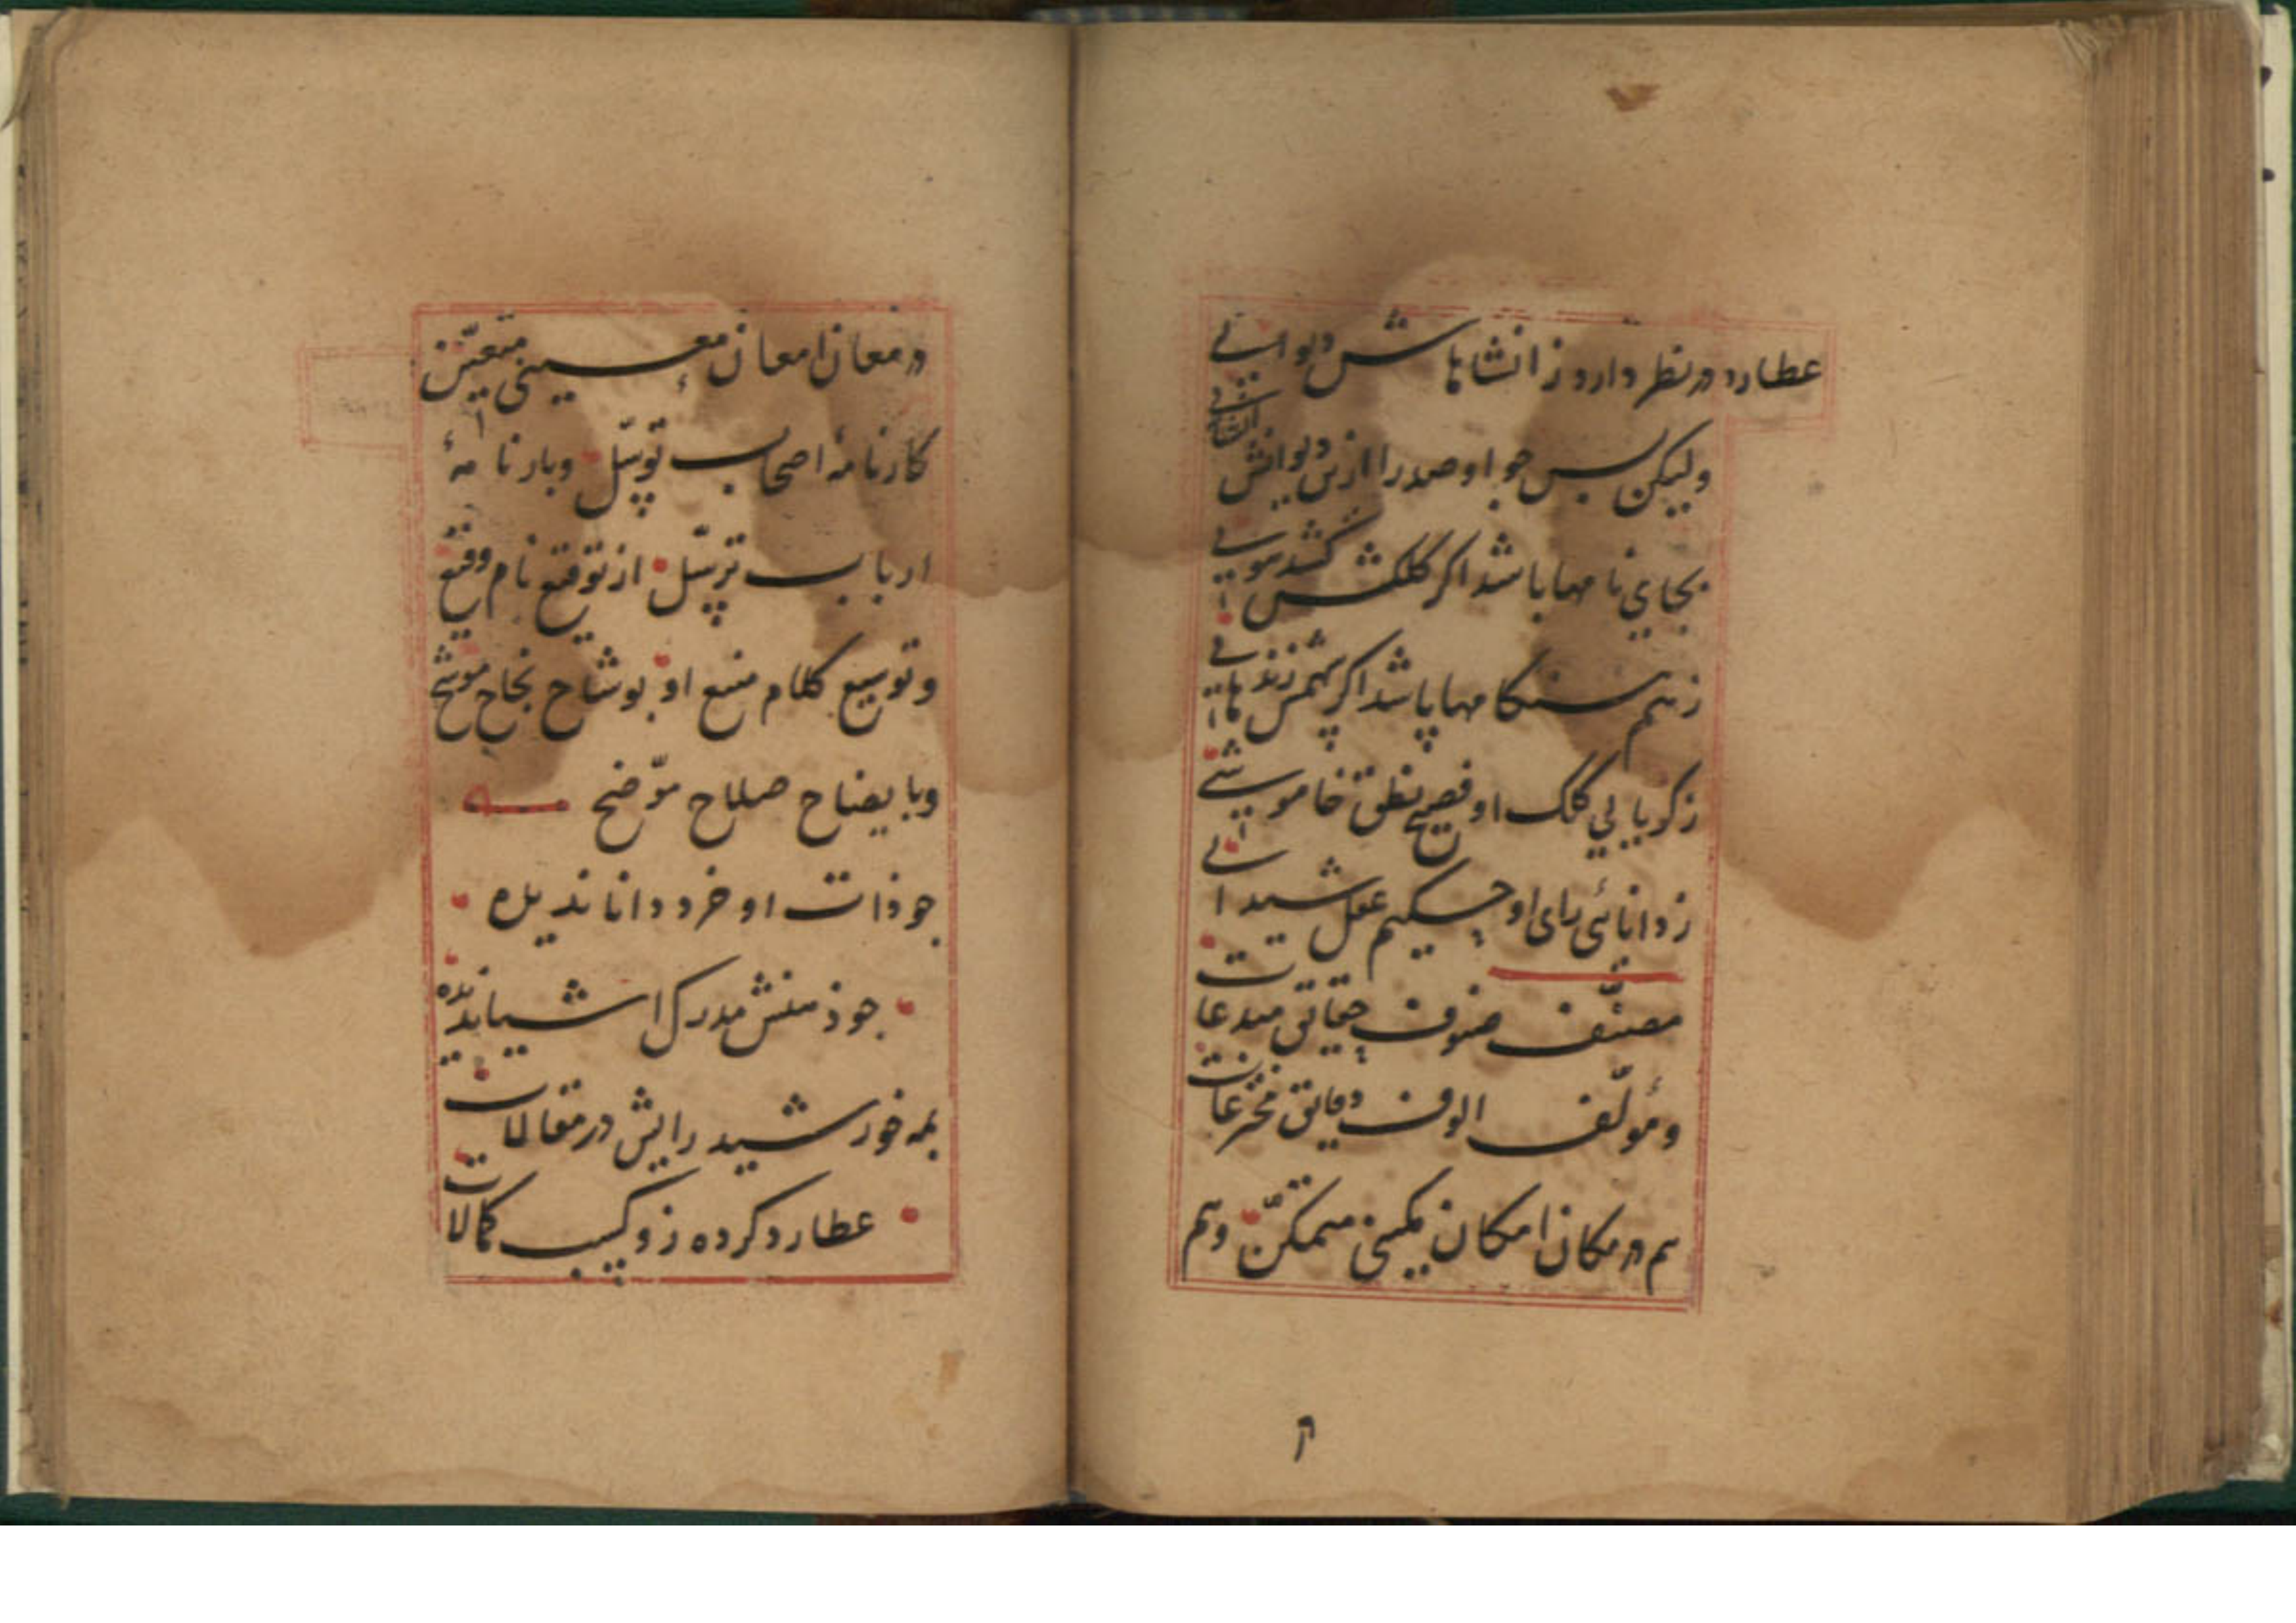 عطارد در نظر دارد ز انشاهاش دیوانے
ولیکن بس جو او صد را ازین دیوانش انشائے
بجای نامها باشد اگر کلکش کشد مویے
زیم سنکامها پاشد اگر زند هائے
ز کریایی کلک او فصیح نطق خاموشے
ز دانائی رای او حکیم عقل شیدائے
مصنّف صنوف حقایق مبدعات
و مؤلّف الوف دقایق مخترعات
هم در مکان امکان یمکنی متمکّن و هم
در معان امعان معینی متعیّن
کارنامۀ اصحاب توسّل و بارنامۀ
ارباب ترسّل از توقیع نام وقیع
و توسیع کلام منیع او بوشاح نجاح موشح
و بایضاح صلاح موّضح
جو ذات او خرد دانا ندیده
جو ذهنش مدرک اشیا ندیده
بمه خورشید رایش در مقالات
عطارد کرده زو کسب کمالات